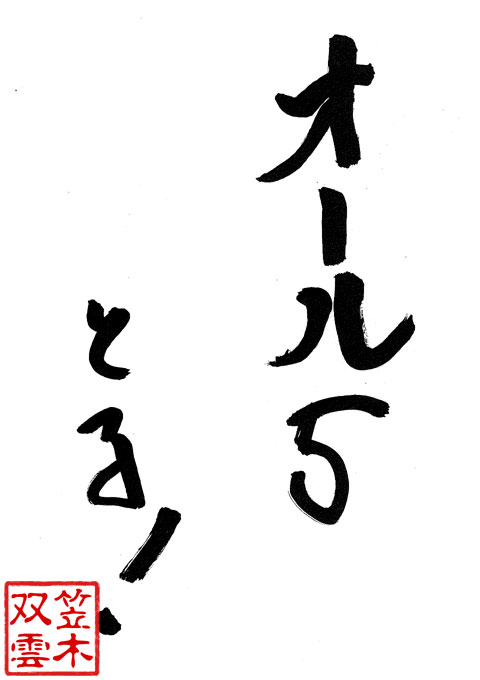 オール5
とる!
笠木
双雲